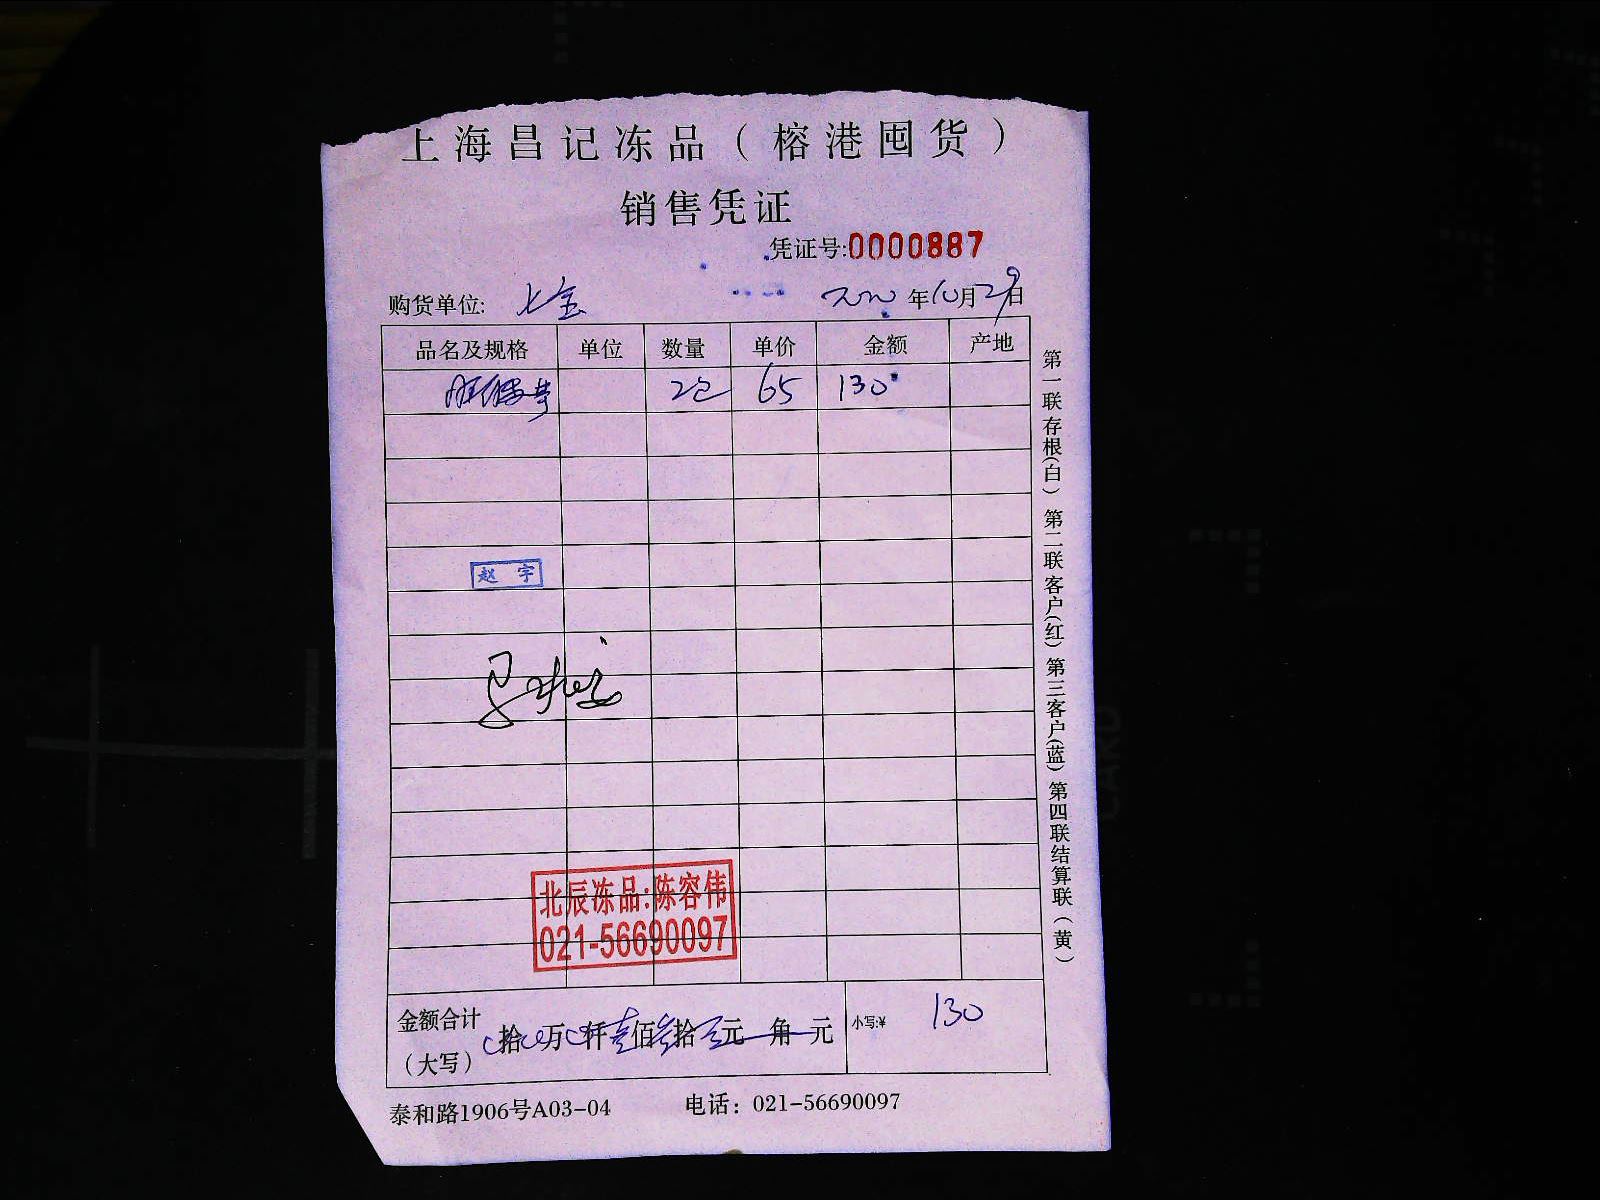 上海昌记冻品（榕港囤货）
销售凭证
凭证号:0000887
购货单位: 七宝 2020年10月29日
品名及规格 单位 数量 单价 金额 产地
2包 65 130
赵宇
北辰冻品:陈容伟
021-56690097
金额合计（大写） 拾 万 仟壹佰叁拾 元 角 元 小写:¥ 130
泰和路1906号A03-04 电话：021-56690097
第一联存根(白) 第二联客户(红) 第三客户(蓝) 第四联结算联(黄)